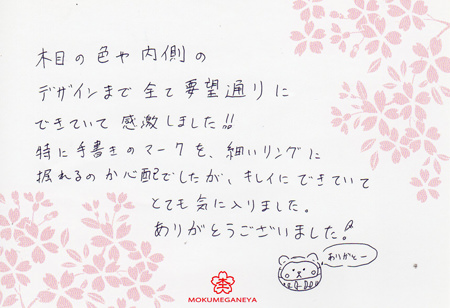 木目の色や内側の
デザインまで全て要望通りに
できていて感激しました!!
特に手書きのマークを、細いリングに
掘れるのか心配でしたが、キレイにできていて
とても気に入りました。
ありがとうございました!
ありがとー
MOKUMEGANEYA